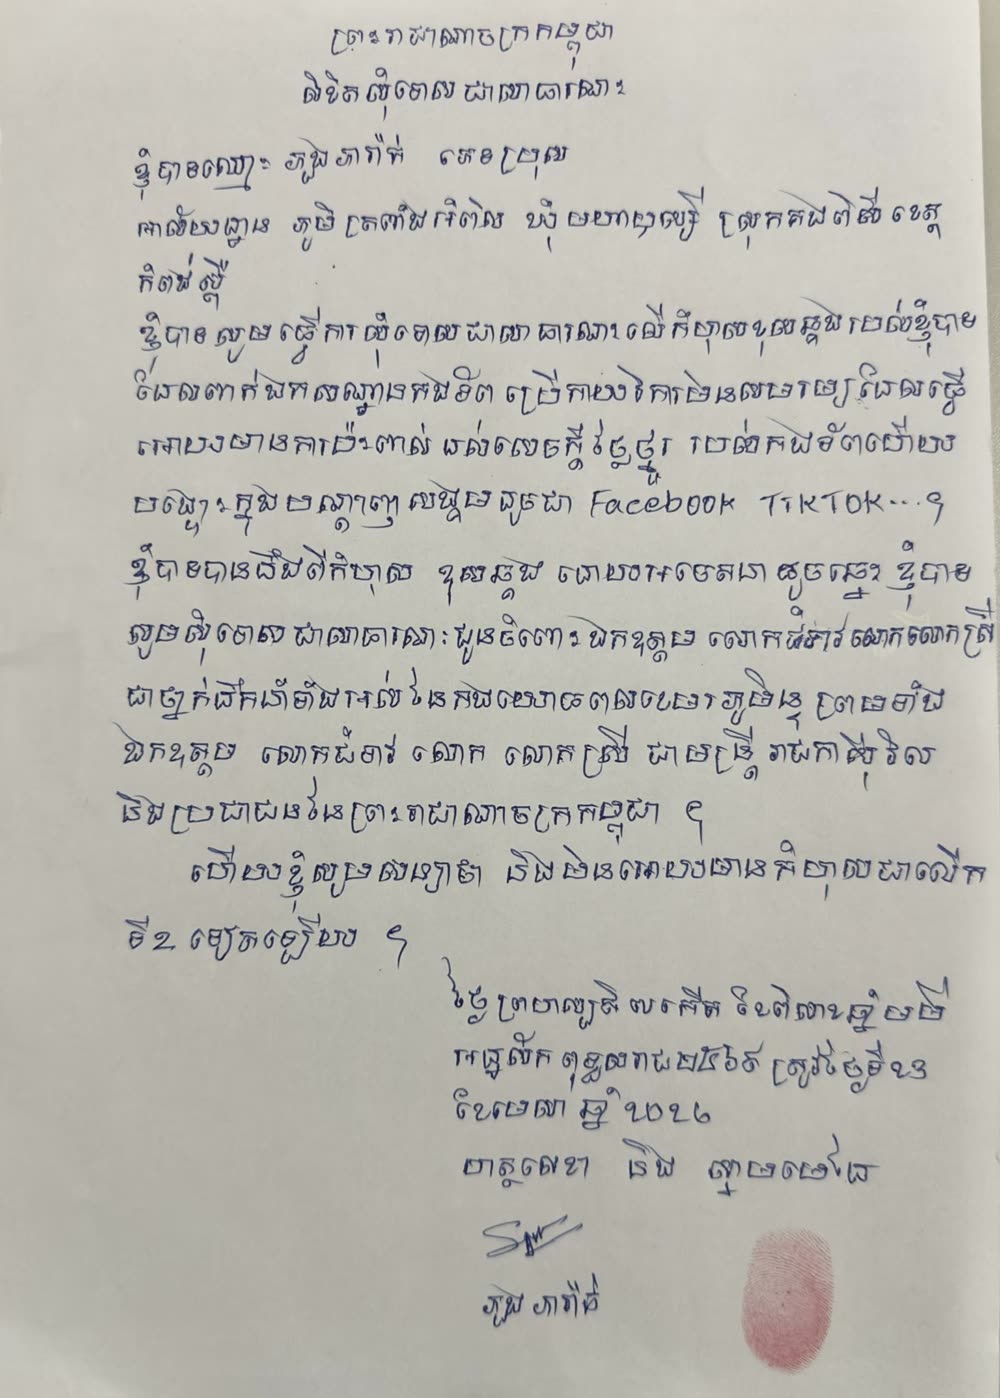 ព្រះរាជាណាចក្រកម្ពុជា
លិខិតសុំទោសជាសាធារណៈ
ខ្ញុំបាទឈ្មោះ ភេទប្រុស
អាស័យដ្ឋាន ភូមិ ត្រពាំងអំពិល ឃុំ ស្រុកគងពិសី ខេត្ត
កំពង់ស្ពឺ
ខ្ញុំបាទសូមធ្វើការសុំទោសជាសាធារណៈលើកំហុសខុសឆ្គងរបស់ខ្ញុំបាទ
ដែលពាក់ឯកសណ្ឋានកងទ័ព ប្រើកាយវិការមិនសមរម្យដែលធ្វើ
អោយមានការប៉ះពាល់ដល់សេចក្តីថ្លៃថ្នូរ របស់កងទ័ពហើយ
បង្ហោះក្នុងបណ្តាញសង្គមដូចជា Facebook TikTOK...។
ខ្ញុំបាទបានដឹងពីកំហុស ខុសឆ្គង ដោយអចេតនា ដូចនេះខ្ញុំបាទ
សូមសុំទោសជាសាធារណៈជូនចំពោះឯកឧត្តម លោកជំទាវ លោកលោកស្រី
ជាថ្នាក់ដឹកនាំទាំងអស់នៃកងយោធពលខេមរភូមិន្ទ ព្រមទាំង
ឯកឧត្តម លោកជំទាវ លោក លោកស្រី ជាមន្ត្រីរាជការស៊ីវិល
និងប្រជាជននៃព្រះរាជាណាចក្រកម្ពុជា ។
ហើយខ្ញុំសូមសន្យាថា នឹងមិនអោយមានកំហុសជាលើក
ទី២ ទៀតឡើយ ។
ថ្ងៃព្រហស្បតិ៍ ខែពិសាខ ឆ្នាំមមី
អដ្ឋស័ក ពុទ្ធសករាជ២៥៦៩ ត្រូវថ្ងៃទី២៣
ខែមេសា ឆ្នាំ ២០២៦
ហត្ថលេខា និង ស្នាមមេដៃ